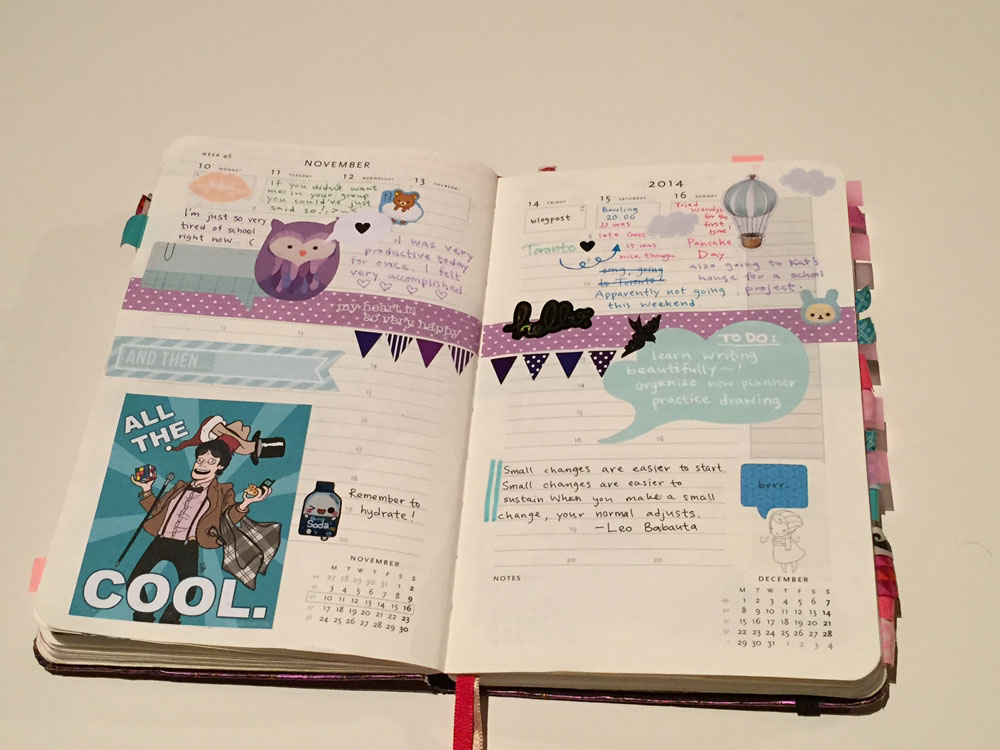 WEEK 46
NOVEMBER
10 MONDAY
11 TUESDAY
12 WEDNESDAY
13 THURSDAY
I'm just so very
tired of school
right now... :(
If you didn't want
me in your group
you could've just
said so, >_>
I was very
productive today
for once. I felt
very accomplished
my heart is
so very happy
AND THEN...
ALL
THE
COOL.
Soda
Remember to
hydrate!
13
14
15
16
18
19
20
NOVEMBER
M T W T F S S
44 27 28 29 30 31 1 2
45 3 4 5 6 7 8 9
46 10 11 12 13 14 15 16
47 17 18 19 20 21 22 23
48 24 25 26 27 28 29 30
2014
14 FRIDAY
15 SATURDAY
16 SUNDAY
blogpost
Bowling
20:00
JJ was
late Guess
it was
nice though
Toronto
omg, going
to Toronto!
Apparently not going
this weekend.
Tried
Wendy's
for the
first
time!
Pancake
Day.
also going to Kat's
house for a school
project.
hello
TO DO:
learn writing
beautifully~!
organize new planner
practice drawing
14
16
16
Small changes are easier to start.
Small changes are easier to
sustain. When you make a small
change, your normal adjusts.
-Leo Babauta
19
20
20
brrr.
NOTES
DECEMBER
M T W T F S S
49 1 2 3 4 5 6 7
50 8 9 10 11 12 13 14
51 15 16 17 18 19 20 21
52 22 23 24 25 26 27 28
1 29 30 31 1 2 3 4